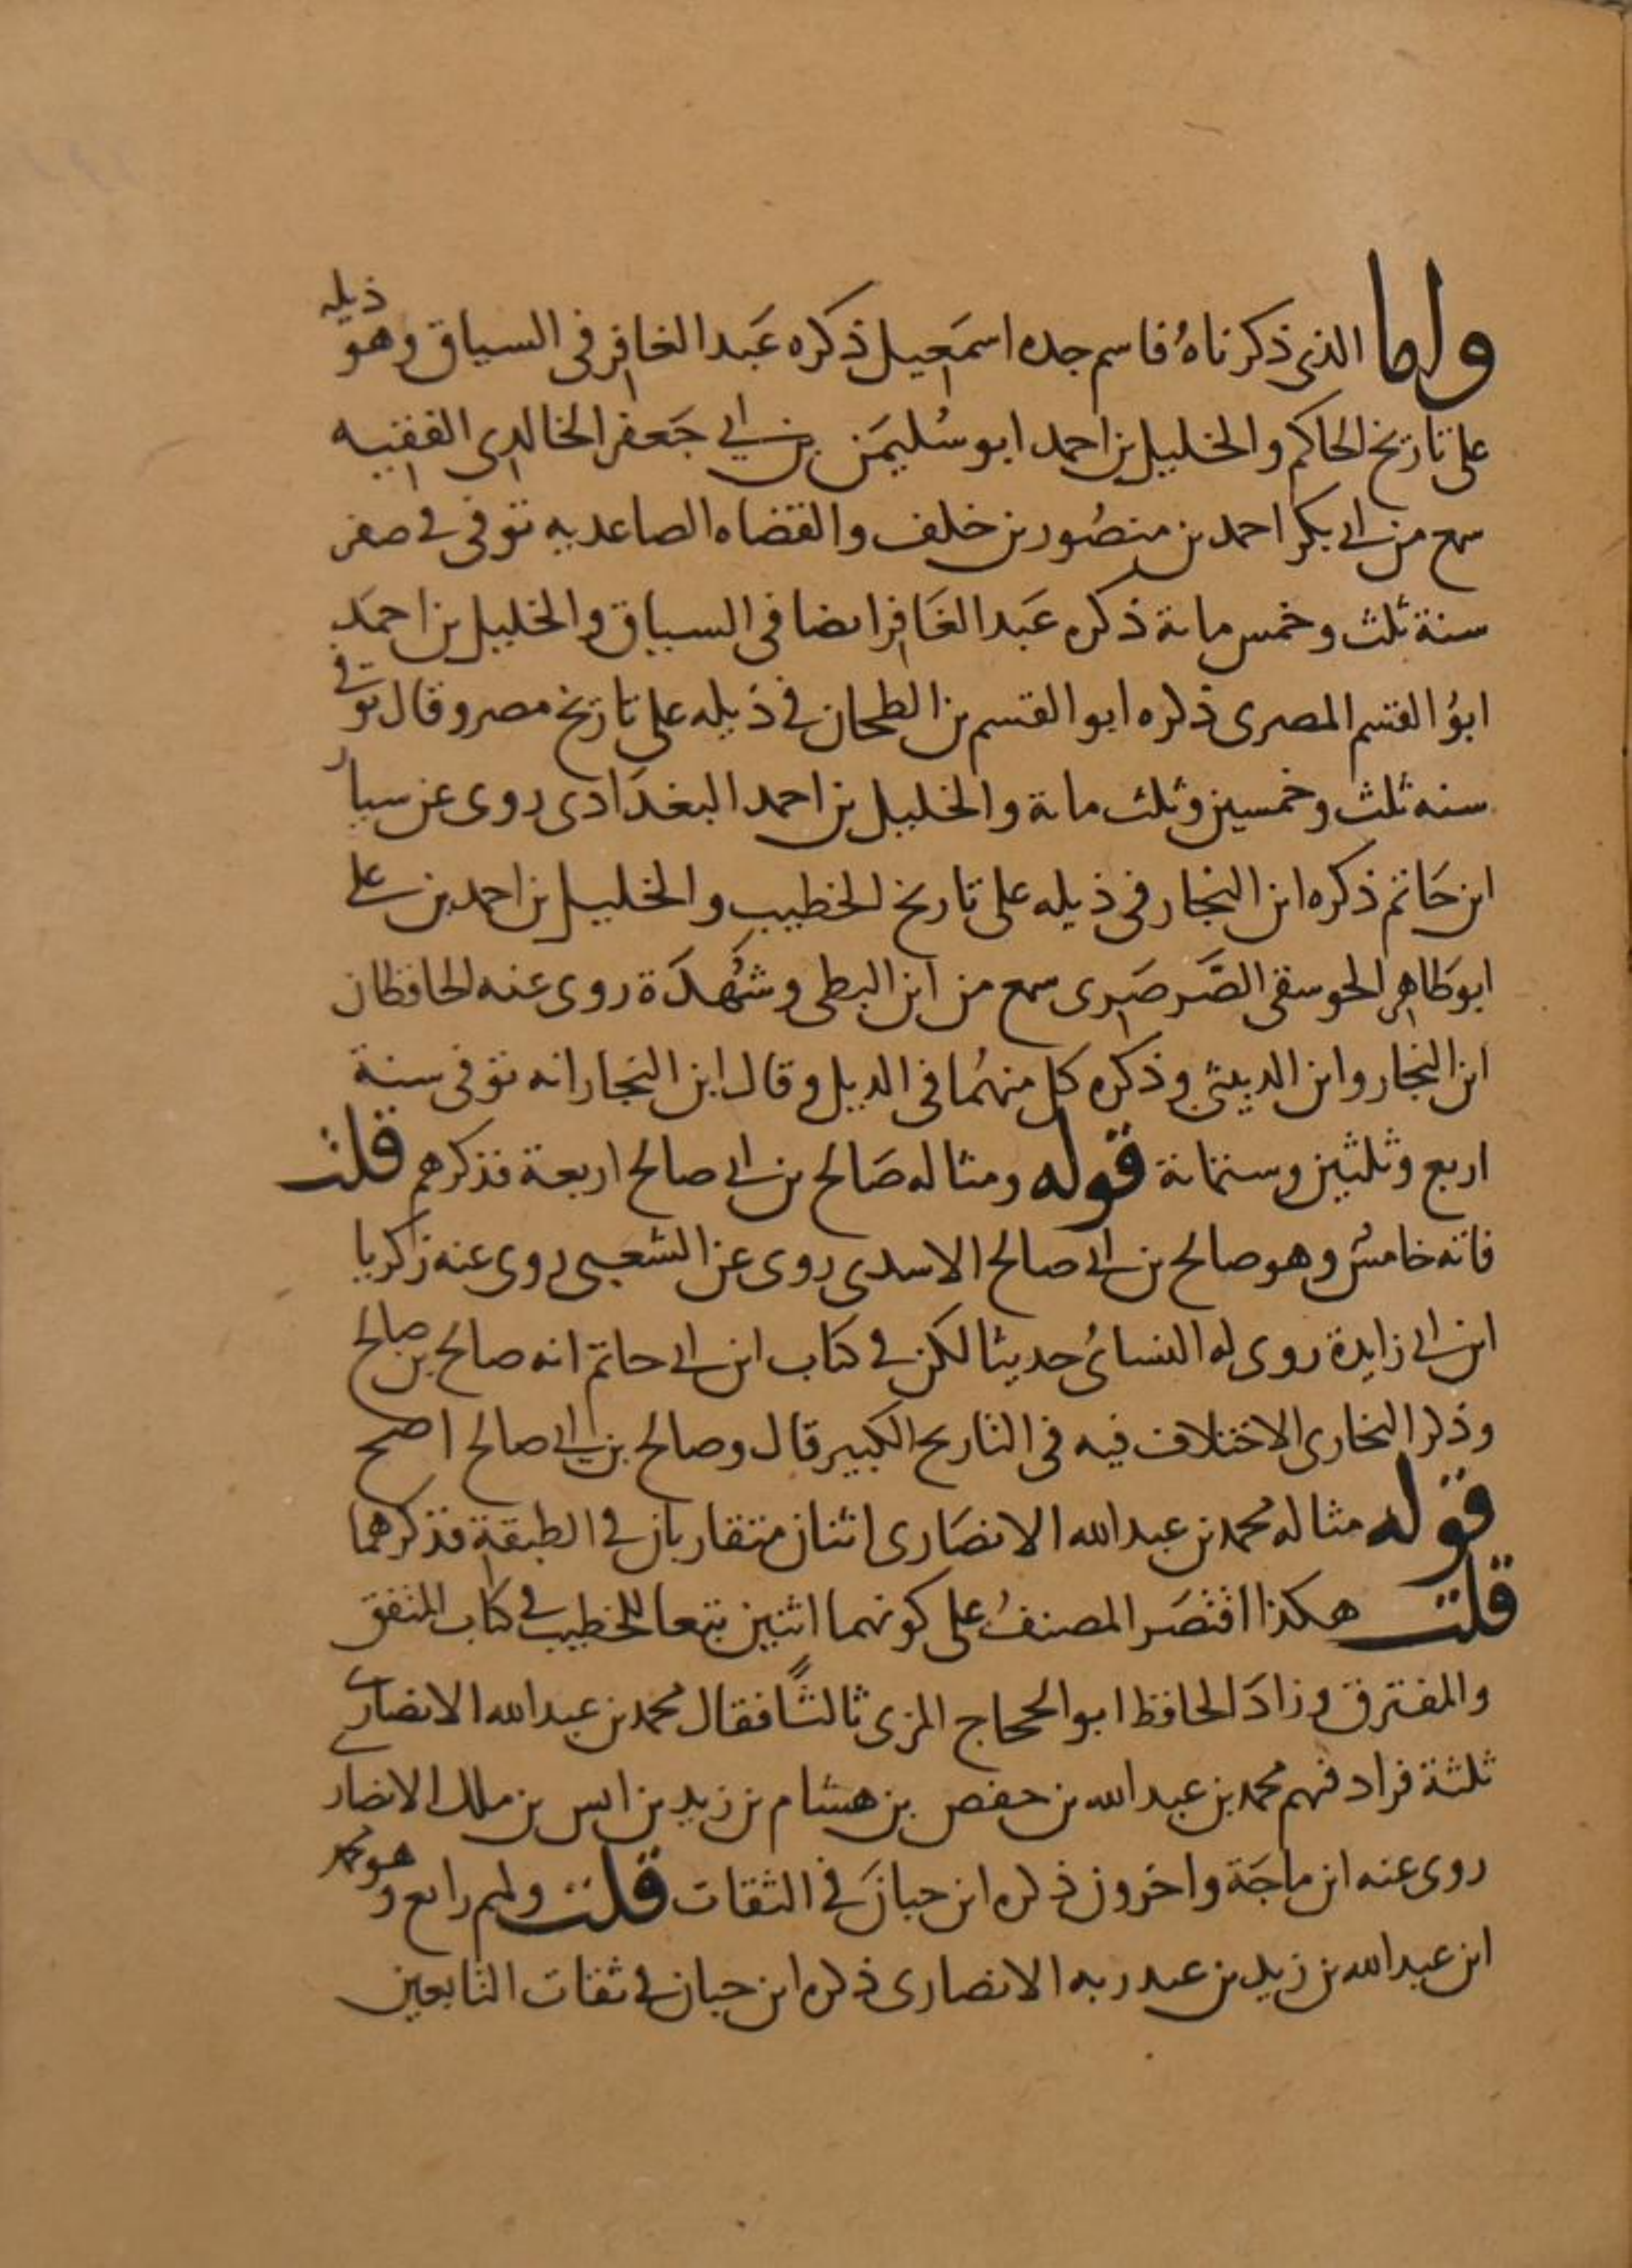 واما الذي ذكرناهُ فاسم جده اسمعيل ذكره عَبد الغافر في السياق وهو ذيله
على تاريخ الحاكم والخليل بن احمد ابو سُليمَن بن ابي جَعفر الخالدي الفقيه
سمع من ابي بكر احمد بن منصُور بن خلف والقضاه الصاعديه توفي في صفر
سنة ثلث وخمس مائة ذكره عَبد الغَافر ايضا في السياق والخليل بن احمَد
ابوُ القسم المصرى ذكره ابو القسم بن الطحان في ذَيله على تاريخ مصر وقال توفي
سنه ثلث وخمسين وثلث مائة والخليل بن احمد البغدَادى روى عن سيار
ابن حَاتم ذكره ابن النجار في ذيله على تاريخ الخطيب والخليل بن احمد بن علي
ابو طَاهر الجوسقي الصَّرصَرى سمع من ابن البطي وشُهدَة روى عنه الحافظان
ابن النجار وابن الدبيثي وذكره كل منهمُا في الذيل وقال ابن النجار انه توفي سنة
اربع وثلثين وستمائة قوله ومثاله صَالح بن ابي صالح اربعة فذكرهم قلت
فاته خامسُ وهو صالح بن ابي صالح الاسدى روى عن الشعبي روى عنه زكريا
ابن ابي زايدة روى له النسائُ حديثا لكن في كتاب ابن ابي حاتم انه صالح بن صالح
وذكر البخارى الاختلاف فيه في التاريخ الكبير قال وصالح بن ابي صالح اصح
قوله مثاله محمد بن عبد الله الانصَارى اثنان متقاربان في الطبقة فذكرهما
قلت هكذا اقتصَر المصنفُ على كونهما اثنين تبعا للخطيب في كتاب المتفق
والمفترق وزادَ الحافظ ابو الحجاج المزى ثالثًا فقال محمد بن عبد الله الانصاري
ثلثة فزاد فيهم محمد بن عبد الله بن حفص بن هشام بن زيد بن انس بن ملك الانصار
روى عنه ابن ماجَة واخرون ذكره ابن حبانَ في الثقات قلت ولهم رابع وهو محمد
ابن عبد الله بن زيد بن عبد ربه الانصارى ذكره ابن حبان في ثقات التابعين